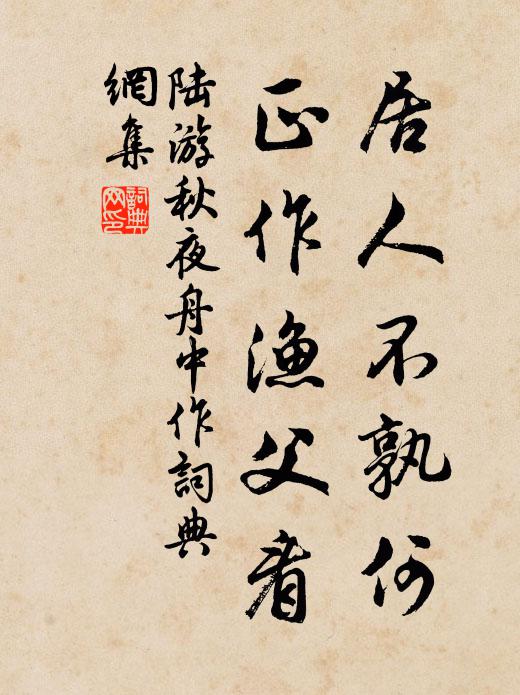 居人不孰何
正作漁父看
陸游秋夜舟中作詞典
網集
詞典
网印